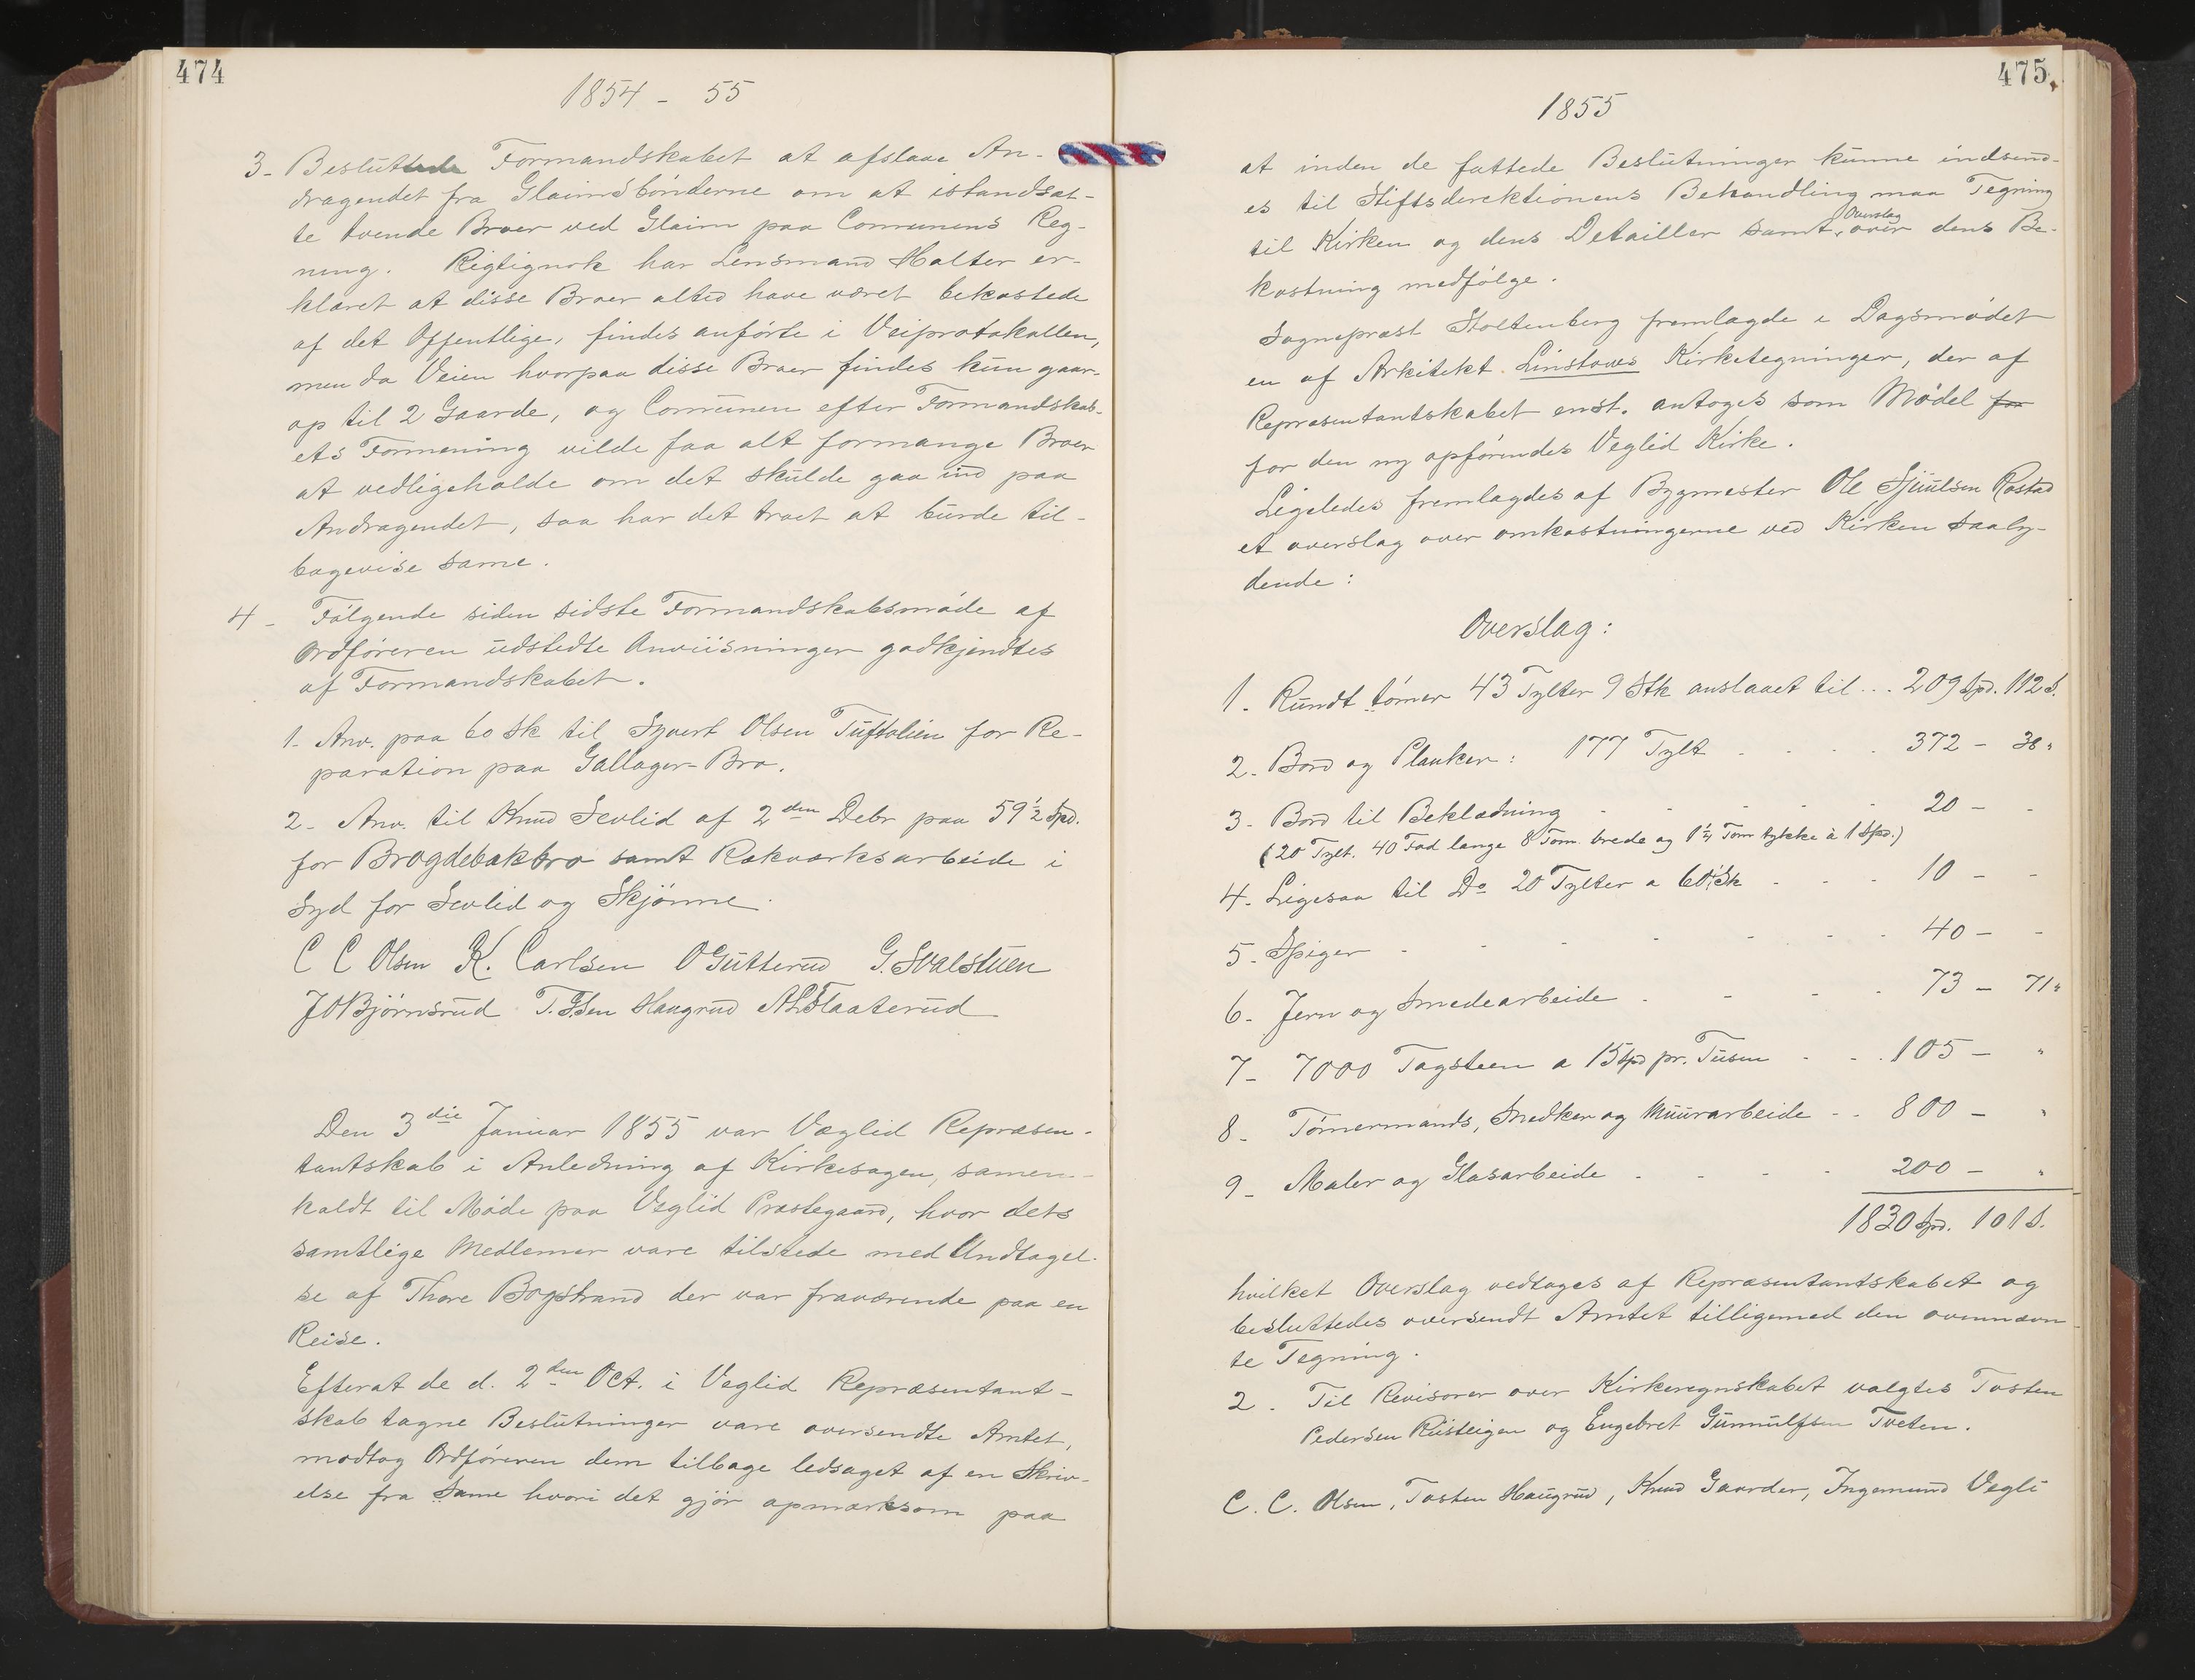 474
1854 - 55
3- Besluttede Formandskabet at afslaae An-
dragendet fra Glaimsbönderne om at istandsæt-
te tvende Broer ved Glaim paa Communens Reg-
ning. Rigtignok har Lensmand Halter er-
klæret at disse Broer altid have været bekostede
af det Offentlige, findes anförte i Veiprotokollen,
men da Veien hvorpaa disse Broer findes kun gaar-
op til 2 Gaarde, og Comunen efter Formandskab-
ets Formening vilde faa alt formange Broer
at vedligeholde om det skulde gaa ind paa
Andragendet, saa har det troet at burde til-
bagevise same.
4- Fölgende siden sidste Formandskabsmöde af
Ordföreren udstedte Anviisninger godkjendtes
af Formandskabet.
1- Anv. paa 60 Sk til Syvert Olsen Tuftolien for Re-
paration paa Gallager-Bro.
2- Anv. til Knud Sevlid af 2den Debr paa 59½ Spd.
for Brogdebakbro samt Rækværksarbeide i
Syd for Sevlid og Skjönne.
C C Olsen K. Carlsen O Gutterud G. Svalstuen
J O Bjørnsrud T. Gsen Haugrud A L Flaaterud
Den 3die Januar 1855 var Væglid Repræsen-
tantskab i Anledning af Kirkesagen, samen-
kaldt til Möde paa Veglid Præstegaard, hvor dets
samtlige Medlemer vare tilstede med Undtagel-
se af Thore Bogstrand der var fraværende paa en
Reise.
Efterat de d. 2den Oct. i Veglid Repræsentant-
skab tagne Beslutninger vare oversendte Amtet,
modtog Ordföreren dem tilbage ledsaget af en Skriv-
else fra Same hvori det gjör opmærksom paa
475
1855
at inden de fattede Beslutninger kunne indsend-
es til Stiftsdirektionens Behandling maa Tegning
til Kirken og dens Detailler samt Overslag over dens Be-
kostning medfölge.
Sognepræst Stoltenberg fremlagde i Dagsmödet
en af Arkitekt Linstows Kirketegninger, der af
Repræsentantskabet enst. antoges som Model for
for den ny opförendes Veglid Kirke.
Ligeledes fremlagdes af Bygmester Ole Sjuulsen Rostad
et overslag over omkostningerne ved Kirken saaly-
dende:
Overslag:
1. Rundt tömer 43 Tylter 9 Stk anslaaet til ... 209 Spd. 112 S.
2. Bord og Planker: 177 Tylt - - - - 372 - 38 "
3- Bord til Beklædning - - - - - 20 - -
(20 Tylt. 40 Fod lange 8 Tom. brede og 1¼ Tom tykke à 1 Spd.)
4- Ligesaa til Do 20 Tylter a 60 Sk - - - 10 - -
5- Spiger - - - - - - - 40 - -
6- Jern og Smedearbeide - - - - 73 - 71 "
7- 7000 Tagsteen a 15 Spd pr. Tusen - - . 105 - "
8- Tömermands, Snedker og Muurarbeide - - 800 - "
9- Maler og Glasarbeide - - - - 200 - "
1830 Spd. 101 S.
hvilket Overslag vedtages af Repræsentantskabet og
besluttedes oversendt Amtet tilligemed den ovennævn-
te Tegning.
2. Til Revisorer over Kirkeregnskabet valgtes Tosten
Pedersen Rusteigen og Engebret Gunnulfsen Tveten.
C. C. Olsen, Tosten Haugrud, Knud Gaarder, Ingemund Vegli